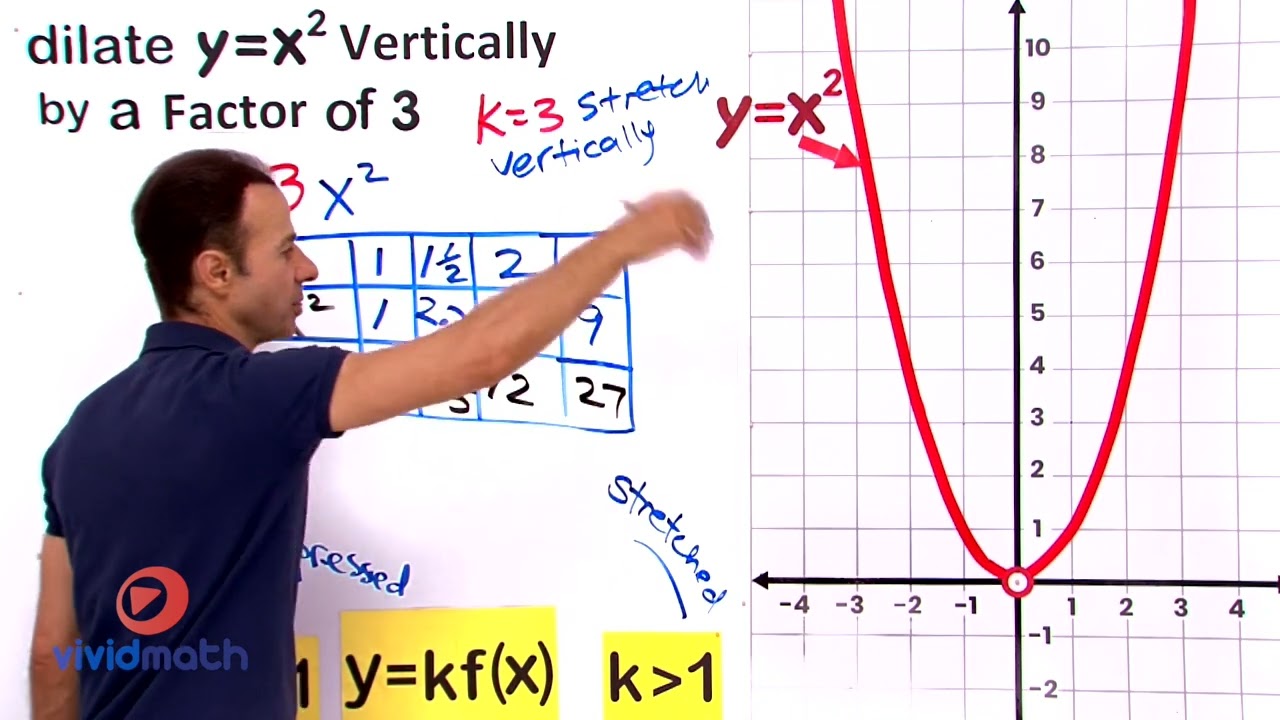 dilate y=x² Vertically
by a Factor of 3
k=3 stretch
vertically
3 x²
1 1½ 2
² 1 2. 9
12 27
stretched
pressed
y=kf(x)
k>1
1
vividmath
y=x²
10
9
8
7
6
5
4
3
2
1
-4 -3 -2 -1 1 2 3 4
-1
-2